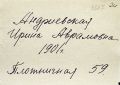 Андриевская
Ирина Аврамовна
1901г.
Плотничная 59.